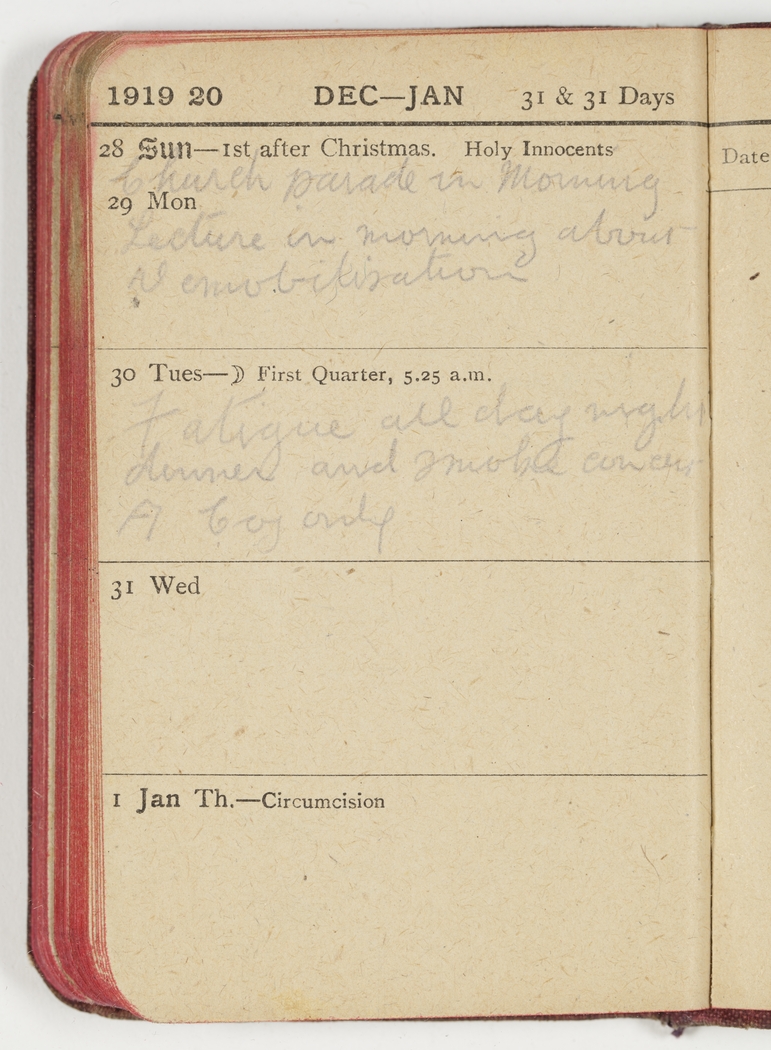 1919 20 DEC—JAN 31 & 31 Days
28 Sun—1st after Christmas. Holy Innocents
Church parade in Morning
29 Mon
Lecture in morning about
Demobilisation
30 Tues—☽ First Quarter, 5.25 a.m.
Fatigue all day night
dinner and smoke concert
A Coy only
31 Wed
1 Jan Th.—Circumcision
Date